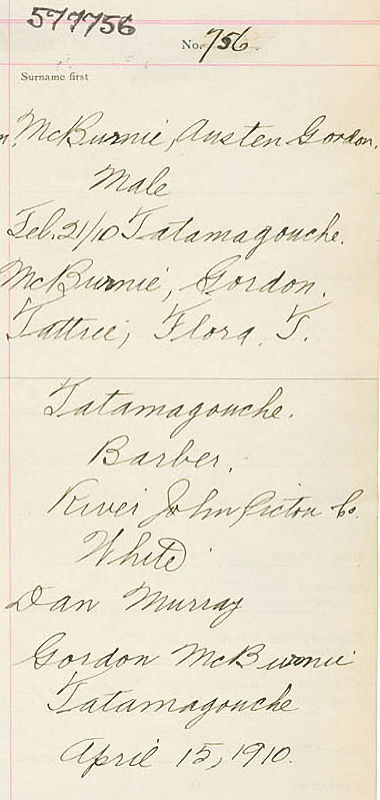 577756
No. 756
Surname first
McBurnie, Austen Gordon.
Male
Feb. 21/10 Tatamagouche.
McBurnie, Gordon.
Tattrie, Flora. T.
Tatamagouche.
Barber.
River John Pictou Co.
White
Dan Murray
Gordon McBurnie
Tatamagouche
April 15, 1910.